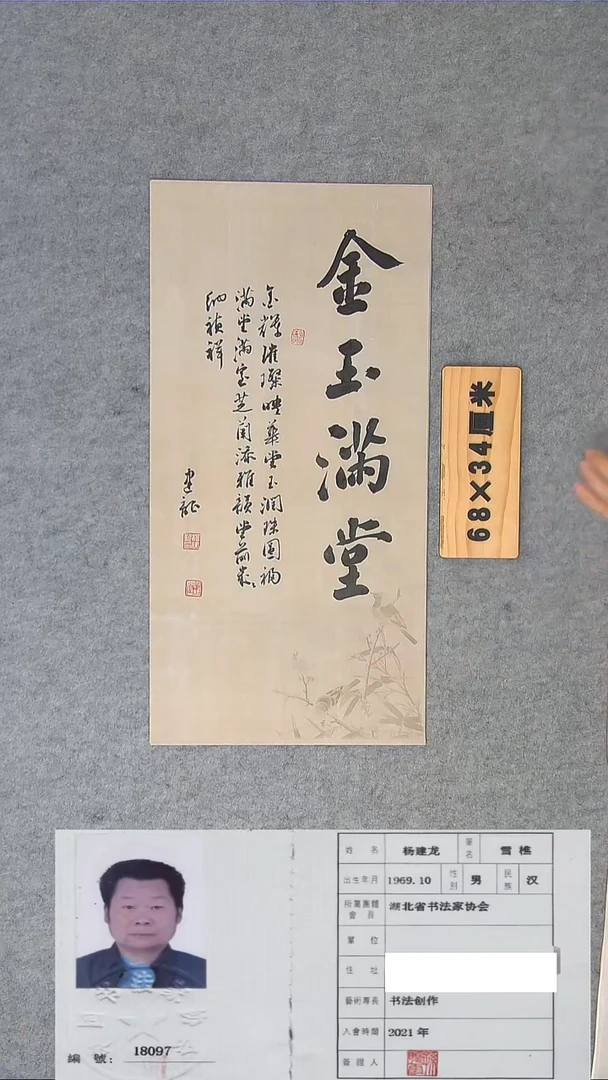 金玉滿堂
金輝璀璨映華堂玉潤珠圓福
滿堂滿室芝蘭添雅韻堂前
納禎祥
建龍
68×34厘米
姓 名 杨建龙 筆名 雪樵
出生年月 1969.10 性别 男 民族 汉
所屬團體會長 湖北省书法家协会
單 位
住 址
藝術專長 书法创作
入會時間 2021年
簽證人
編號: 18097